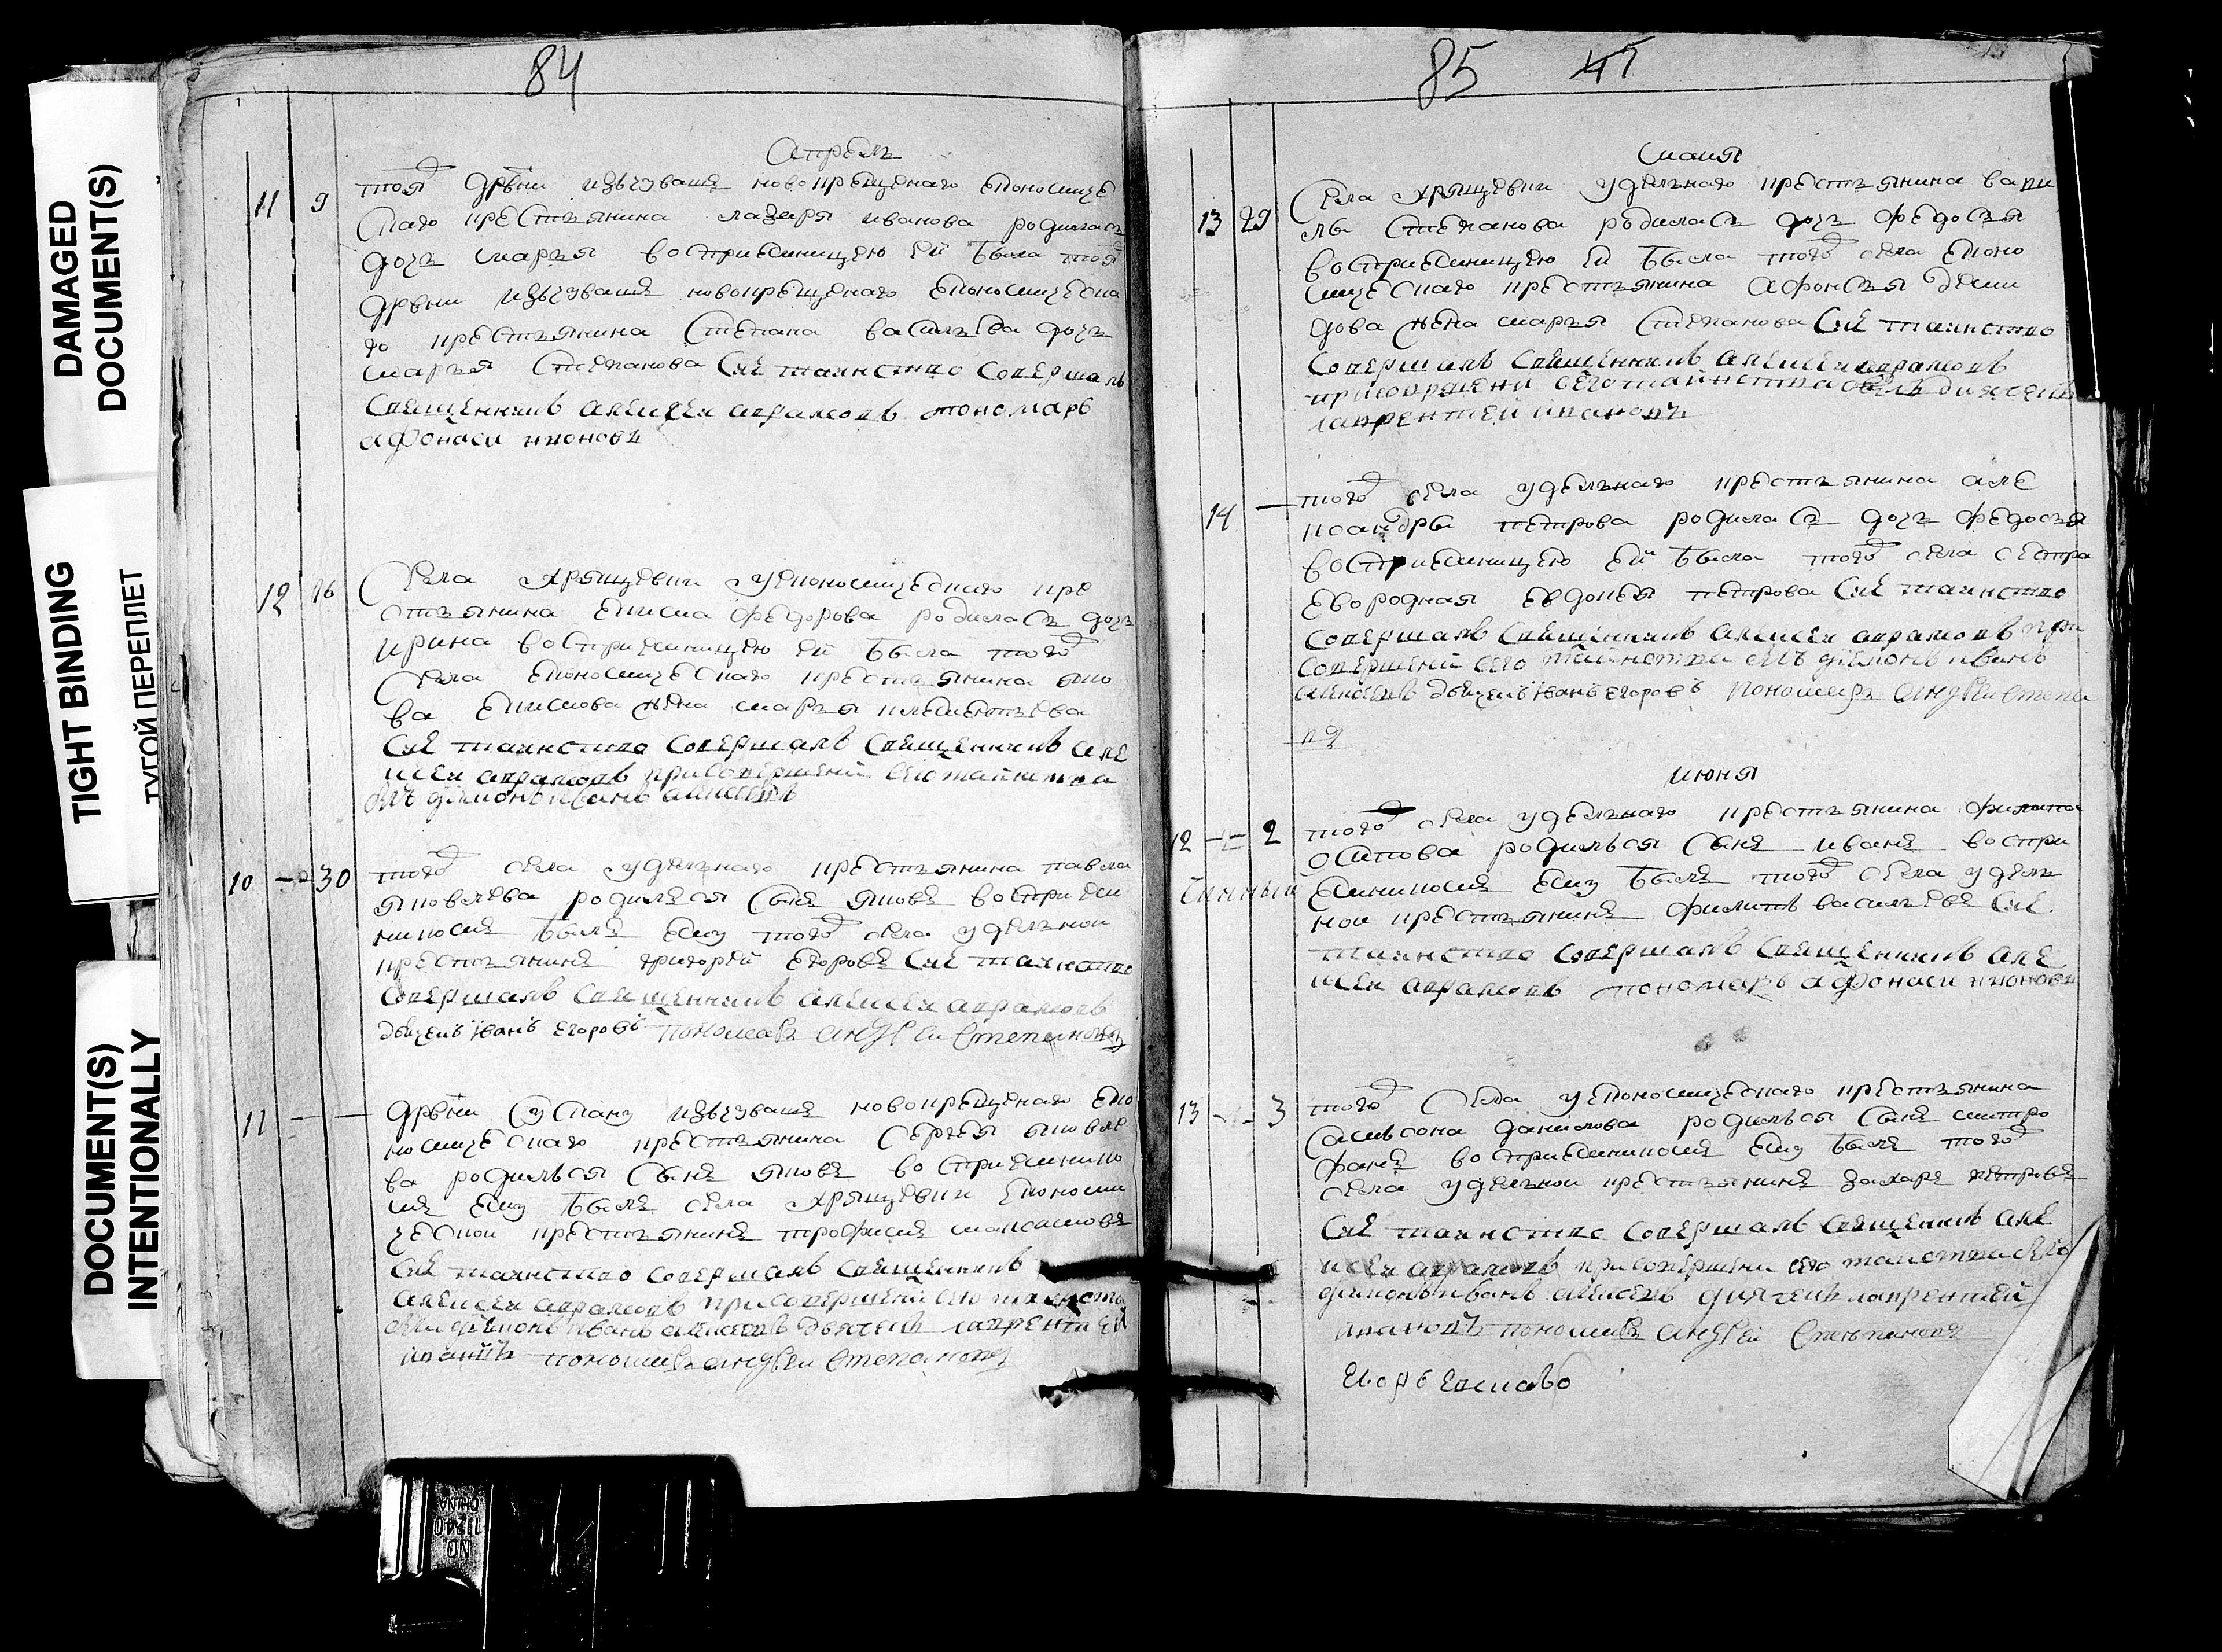 DAMAGED
DOCUMENT(S)
TIGHT BINDING
ТУГОЙ ПЕРЕПЛЕТ
DOCUMENT(S)
INTENTIONALLY
84
Апрель
11 9 той дрвни новокрещенаго економиче
скаго крестьянина лазаря иванова родилась
дочь марья восприемницею ей была той
дрвни новокрещенаго економическа
го крестьянина степана васильева дочь
марья степанова сие таинство совершалъ
священникъ алексеи аврамовъ пономарь
афонаси
12 16 Села хрящевки економическаго кре
стьянина федорова родилась дочь
ирина восприемницею ей была того
села економическаго крестьянина яко
ва жена марья
сие таинство совершалъ священникъ але
ксеи аврамовъ присовершени сего таинства
диаконъ иванъ алексеевъ
10 30 того села удельнаго крестьянина павла
яковлева родился сынъ яковъ восприем
никомъ былъ ему того села удельной
крестьянинъ григорей егоровъ сие таинство
совершалъ священникъ алексеи аврамовъ
дьячекъ иванъ егоровъ пономарь андреи степановъ
11 дрвни новокрещенаго еко
номическаго крестьянина сергея яковле
ва родилься сынъ яковъ восприемнико
мъ ему былъ села хрящевки економи
ческой крестьянинъ трофимъ максимовъ
сие таинство совершалъ священникъ
алексеи аврамовъ присовершени сего таинства
диаконъ иванъ алексеевъ дьячекъ лаврентей
ивановъ пономарь андреи степановъ
NO.
11240
CHINA
85 47
маия
13 29 Села хрящевки удельнаго крестьянина васи
лья степанова родилась дочь федосья
восприемницею ей была того села еконо
мическаго крестьянина афонасья деми
дова жена марья степанова сие таинство
совершалъ священникъ алексеи аврамовъ
присовершени сего таинства былъ дьячекъ
лаврентей ивановъ
14 того села удельнаго крестьянина але
ксандры петрова родилась дочь федосья
восприемницею ей была того села сестра
евородная евдокея петрова сие таинство
совершалъ священникъ алексеи аврамовъ при
совершени сего таинства диаконъ иванъ
алексеевъ дьячекъ иванъ егоровъ пономарь андреи степа
нов
июня
12 2 того села удельнаго крестьянина филипа
осипова родилься сынъ иванъ воспри
емникомъ ему былъ того села удель
ной крестьянинъ филипъ васильевъ сие
таинство совершалъ священникъ але
ксеи аврамовъ пономарь афонаси
13 3 того села економическаго крестьянина
самсона данилова родилься сынъ митро
фанъ восприемникомъ ему былъ того
села удельной крестьянинъ захаръ петровъ
сие таинство совершалъ священникъ але
ксеи аврамовъ присовершени сего таинства
диаконъ иванъ алексеевъ дьячекъ лаврентей
ивановъ пономарь андреи степановъ